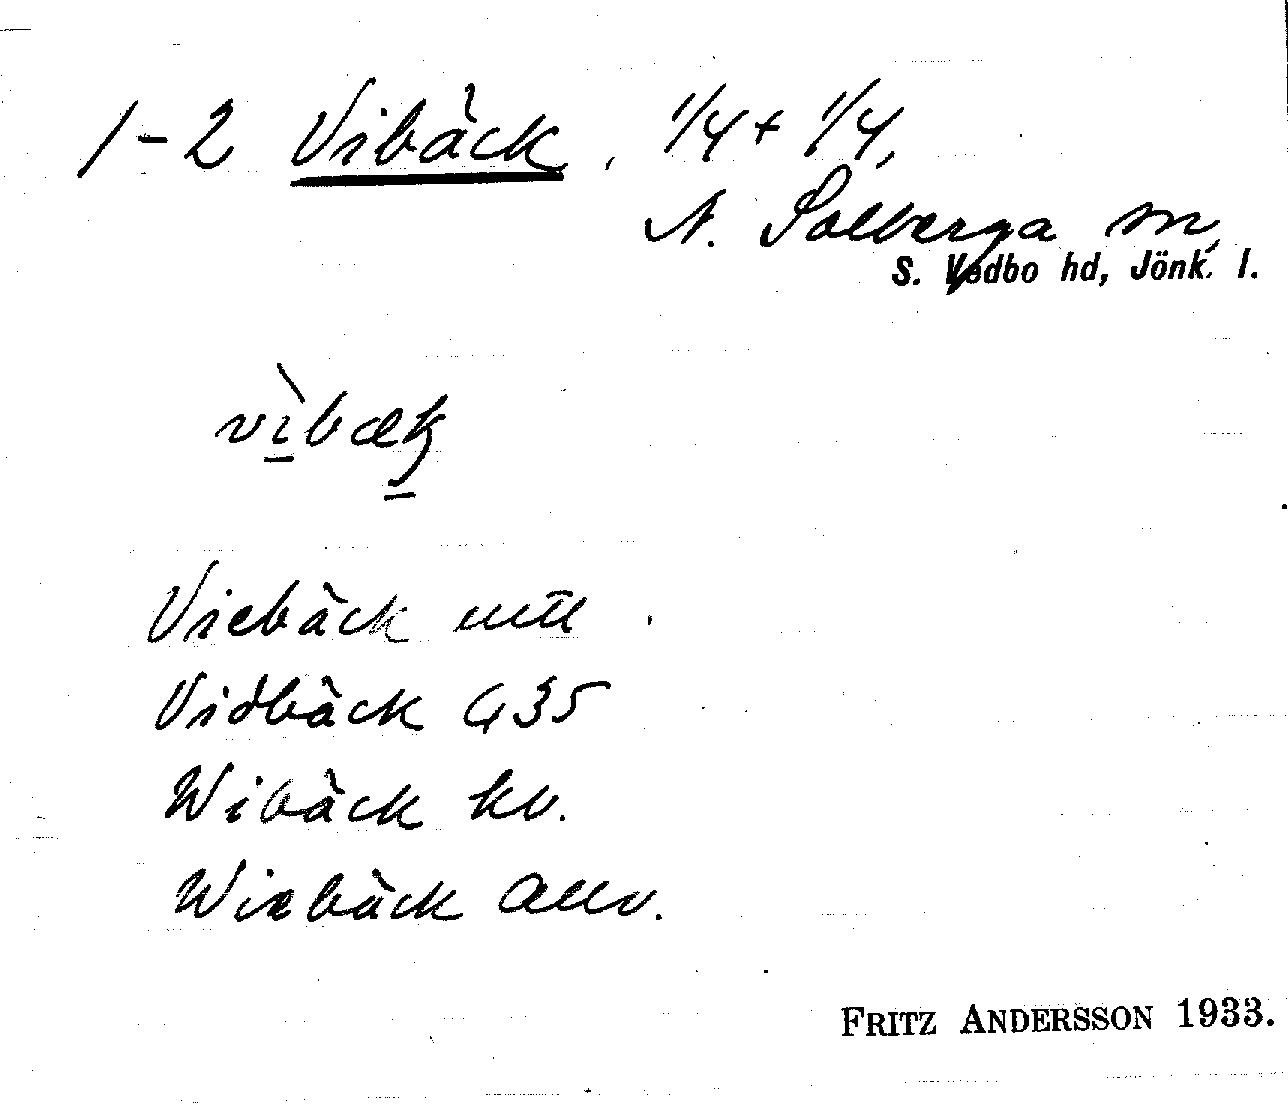 1-2 Vibäck, 1/4 + 1/4,
N. Solberga sn,
S. Vedbo hd, Jönk. l.
vìbæk
Viebäck
Vidbäck G 35
Wibäck kv.
Wiebäck Allv.
FRITZ ANDERSSON 1933.